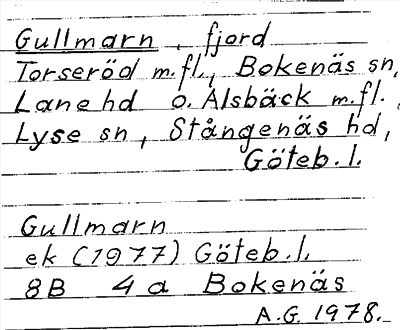 Gullmarn, fjord
Torseröd m.fl., Bokenäs sn,
Lane hd o. Alsbäck m.fl.,
Lyse sn, Stångenäs hd,
Göteb. l.
Gullmarn
ek (1977) Göteb. l.
8B 4a Bokenäs
A.G. 1978.